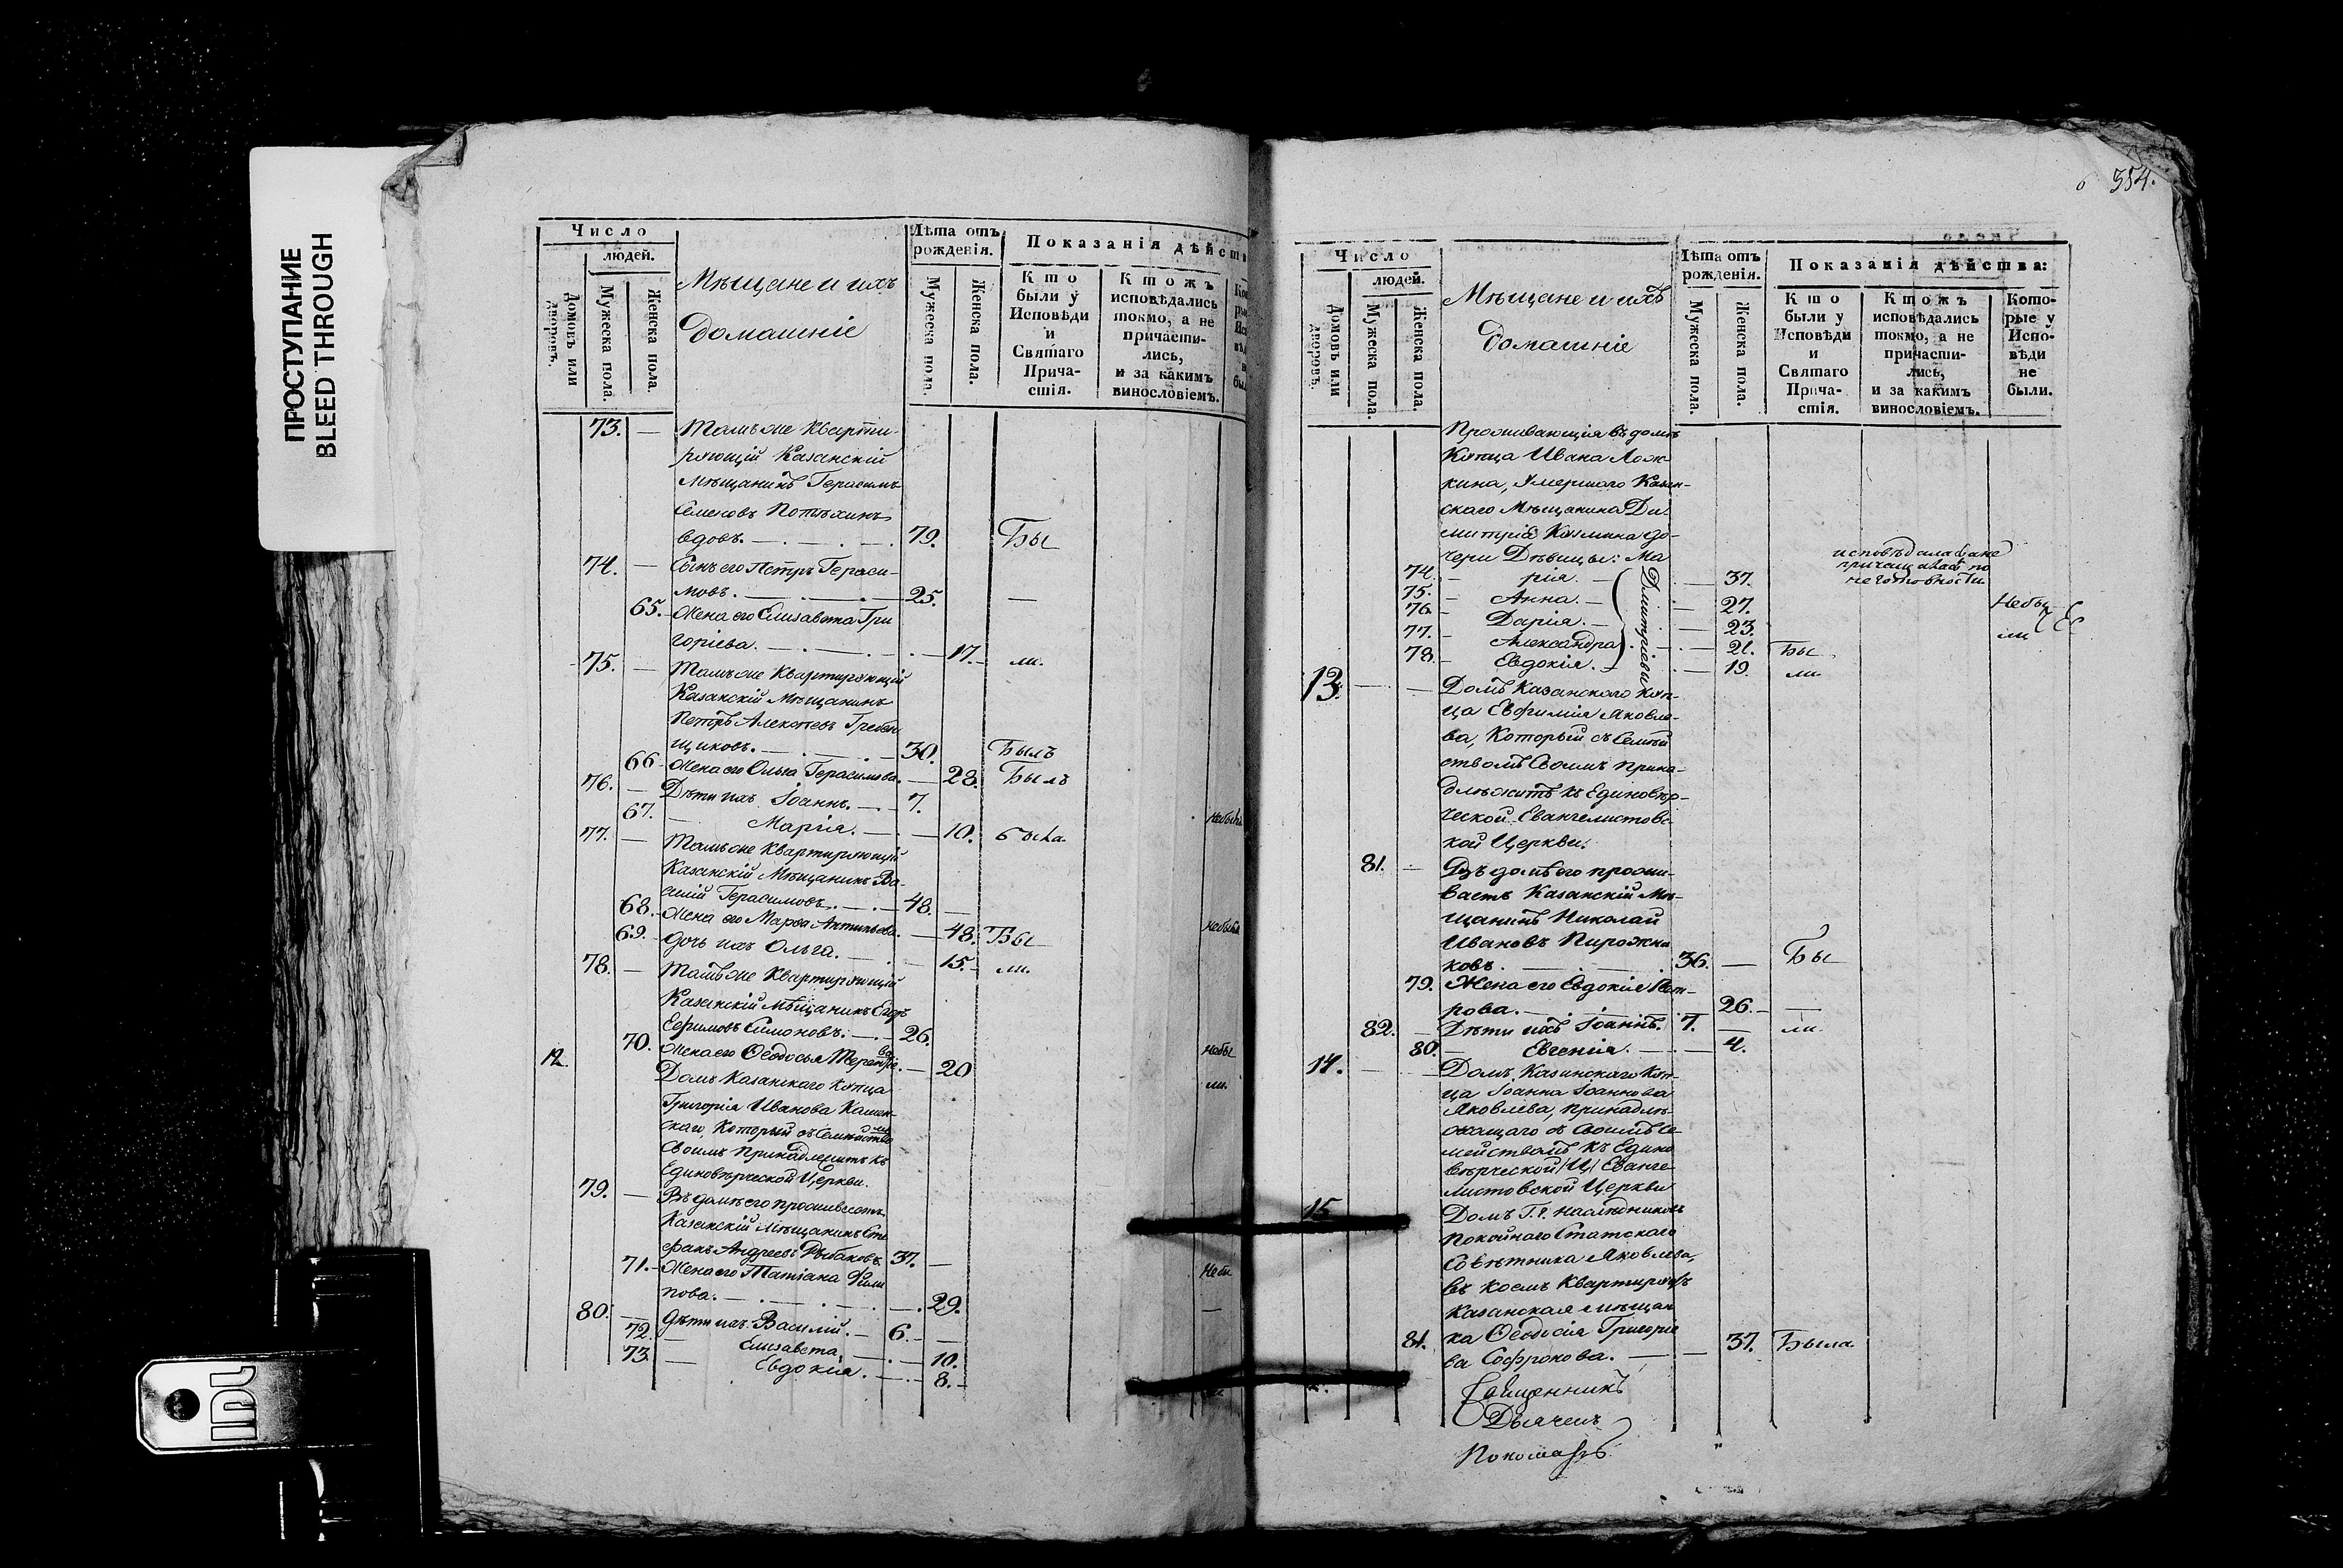 ПРОСТУПАНИЕ
BLEED THROUGH
Число
людей.
Домовъ или дворовъ.
Мужеска пола.
Женска пола.
Мѣщане и ихъ
домашніе
Лѣта отъ
рожденія.
Мужеска пола.
Женска пола.
Показанія дѣйств
Кто
были у
Исповѣди
и
Святаго
Прича-
стія.
Ктожъ
исповѣдались
токмо, а не
причасти-
лись,
и за какимъ
винословіемъ.
73. — Тамъ же Кварти-
рующій Казанскій
Мѣщанинъ Герасимъ
Семеновъ Потѣхинъ
вдовъ. — 79. Бы
74. — Сынъ его Петръ Гераси-
мовъ. — 25. —
65. Жена его Елизавета Гри
горіева. — 17. ли.
75. — Тамъ же Квартирующій
Казанскій Мѣщанинъ
Петръ Алексѣевъ Гребен
щиковъ. — 30. Былъ
66. Жена его Ольга Герасимова. — 28. Былъ
76. — Дѣти ихъ Іоаннъ. — 7.
67. — Марія. — 10. была.
77. — Тамъ же Квартирующій
Казанскій Мѣщанинъ Ва-
силій Герасимовъ. — 48. —
68. Жена его Марѳа Антипьева. — 48. Бы
69. дочь ихъ Ольга. — 15. ли.
78. — Тамъ же Квартирующій
Казанскій Мѣщанинъ Егоръ
Ефимовъ Симоновъ. — 26.
70. Жена его Ѳеодосья — 20
12. Домъ Казанскаго Купца
Григорія Иванова Камен-
скаго, Который съ Семействомъ
Своимъ Принадлежитъ къ
Единовѣрческой Церкви.
79. — Въ домѣ его проживаетъ
Казанскій Мѣщанинъ Сте
фанъ Андреевъ Рыбаковъ. 37. —
71. Жена его Татіана Фили
пова. — 29.
80. — дѣти ихъ Василій. — 6. —
72. — Елизавета. — 10.
73. — Евдокія. — 8.
354.
Число
людей.
Домовъ или дворовъ.
Мужеска пола.
Женска пола.
Мѣщане и ихъ
домашніе
Лѣта отъ
рожденія.
Мужеска пола.
Женска пола.
Показанія дѣйства:
Кто
были у
Исповѣди
и
Святаго
Прича-
стія.
Ктожъ
исповѣдались
токмо, а не
причасти-
лись,
и за какимъ
винословіемъ.
Кото-
рые у
Испо-
вѣди
не
были.
Проживающія въ домѣ
Купца Ивана Лож
кина, Умершаго Казан-
скаго Мѣщанина Ди-
митрія Козмина до-
чери Дѣвицы: Ма
74. — рія. — Дмитріевы — 37. исповѣдалась а не
причащалась по
неготовности.
75. — Анна. — 27. Небы
76. — Дарія. — 23. ли
77. — Александра. — 21. Бы
78. — Евдокія. — 19. ли.
13. — Домъ Казанскаго Куп-
ца Евфимія Яковле-
ва, Который съ Семей
ствомъ Своимъ прина-
длѣжитъ къ Единовѣр-
ческой Евангелистовс-
кой Церкви.
81. — Въ домѣ его прожи-
ваетъ Казанскій Мѣ-
щанинъ Николай
Ивановъ Пирожни
ковъ. — 36. — Бы
79. Жена его Евдокія Пет-
рова. — 26. —
82. — Дѣти ихъ Іоаннъ. 7. — ли.
80. — Евгенія. — 4.
14. — Домъ Казанскаго Куп-
ца Іоанна Іоаннова
Яковлева, принадлѣ-
жащаго съ Своимъ Се
мействомъ къ Едино
вѣрческой /Ц/ Еванге-
листовской Церкви
15. Домъ Г. Г. Наслѣдниковъ
покойнаго Статскаго
Совѣтника Яковлева,
въ коемъ Квартируетъ
Казанская мѣщан
81. ка Ѳеодосія Григорие
ва Софронова. — 37. Была.
Священникъ
Дьячекъ
Пономарь